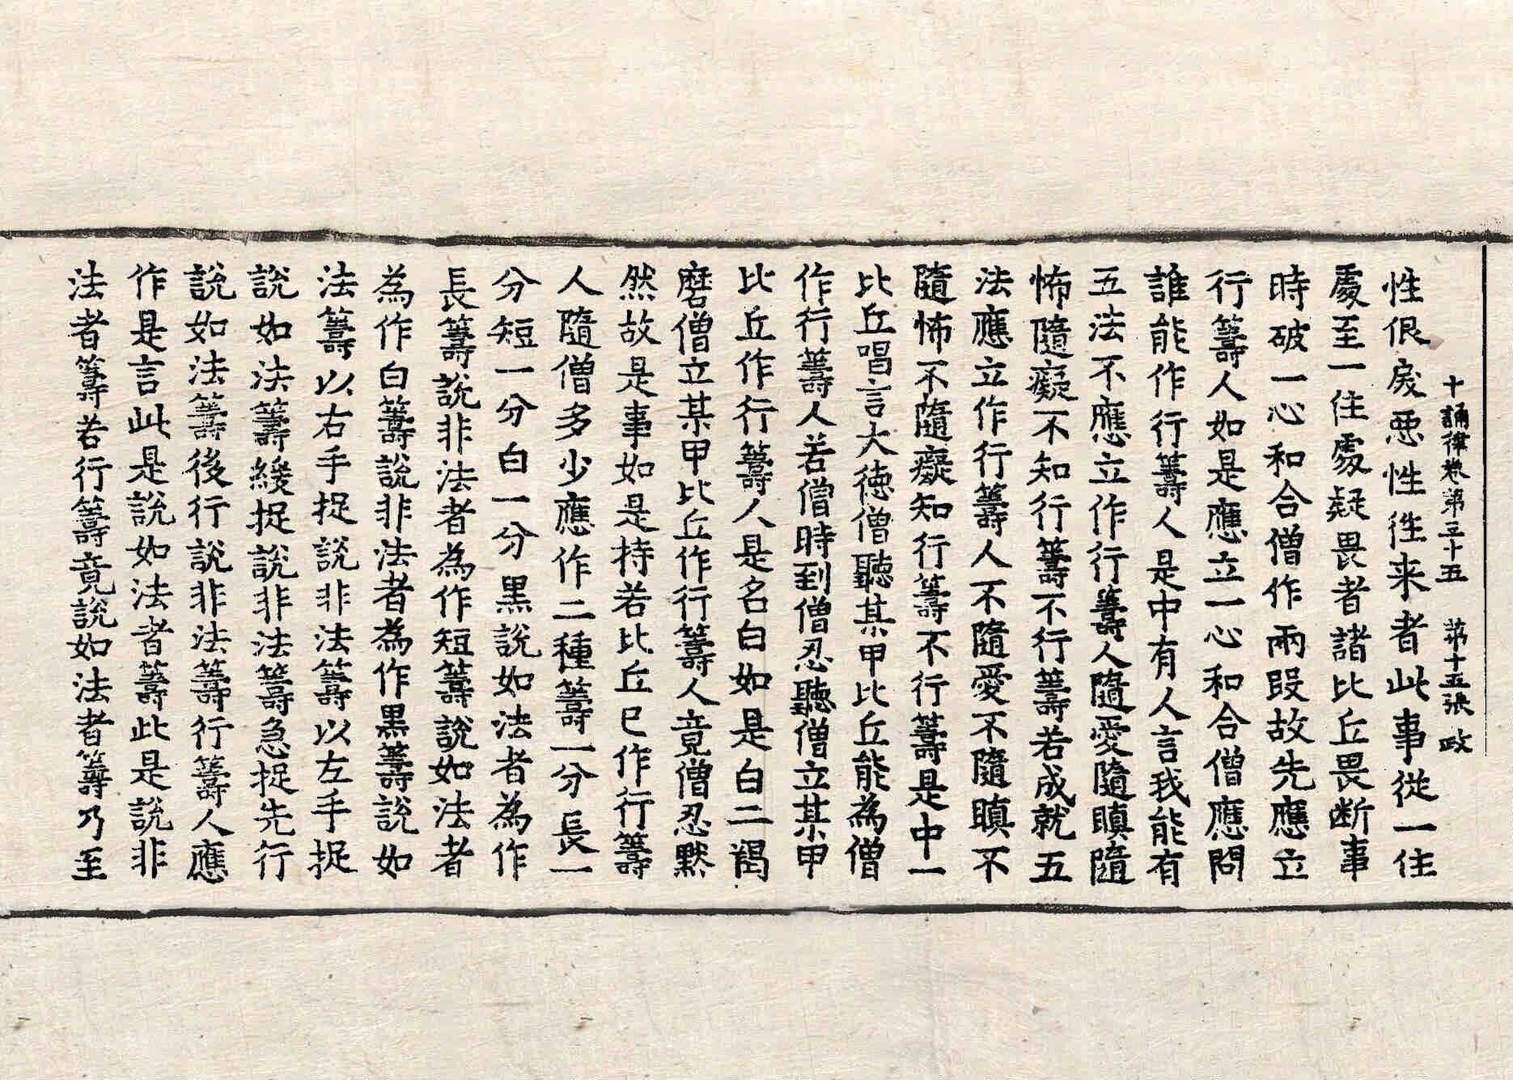 十誦律卷第三十五　第十五張　政
性佷戾惡性徃来者此事從一住
處至一住處疑畏者諸比丘畏断事
時破一心和合僧作兩段故先應立
行籌人如是應立一心和合僧應問
誰能作行籌人是中有人言我能有
五法不應立作行籌人隨愛隨瞋隨
怖隨癡不知行籌不行籌若成就五
法應立作行籌人不隨愛不隨瞋不
隨怖不隨癡知行籌不行籌是中一
比丘唱言大徳僧聽某甲比丘能為僧
作行籌人若僧時到僧忍聽僧立某甲
比丘作行籌人是名白如是白二羯
磨僧立某甲比丘作行籌人竟僧忍黙
然故是事如是持若比丘已作行籌
人隨僧多少應作二種籌一分長一
分短一分白一分黒說如法者為作
長籌說非法者為作短籌說如法者
為作白籌說非法者為作黒籌說如
法籌以右手捉說非法籌以左手捉
說如法籌緩捉說非法籌急捉先行
說如法籌後行說非法籌行籌人應
作是言此是說如法者籌此是說非
法者籌若行籌竟說如法者籌乃至